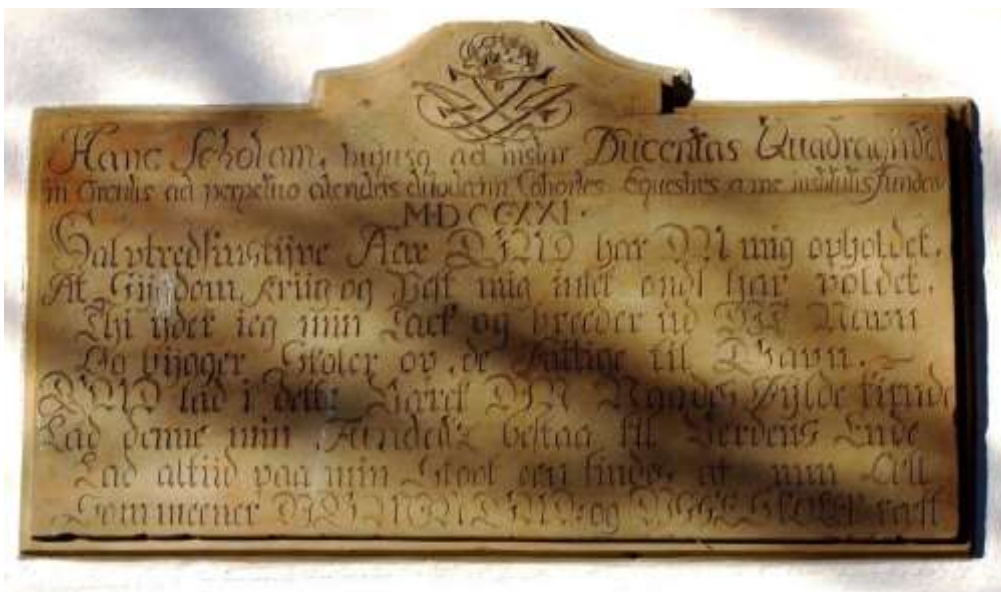 Hanc Scholam, hujusq ad instar Ducentas Quadraginta
in Circulis ad perpetuo alendas duodecim Cohortes Equestres a me institutis fundavi
MDCCXXI.
Halvtredsinstijve Aar GUD har DU mig opholdet.
At Sijgdom, Kriig og Pest mig intet ondt har voldet.
Thi ijder ieg min Tack og breeder ud Dit Nawn
Og bijgger Skoler op, de Fattige til Ghavn.
GUD lad i dette Værck DIN Naades Fylde kiende
Lad denne min Fundadz bestaa til Verdens Ende
Lad altiid paa min Stool een findes af min Ætt
Som meener DIG MIN GUD og DISSE SKOLER rætt